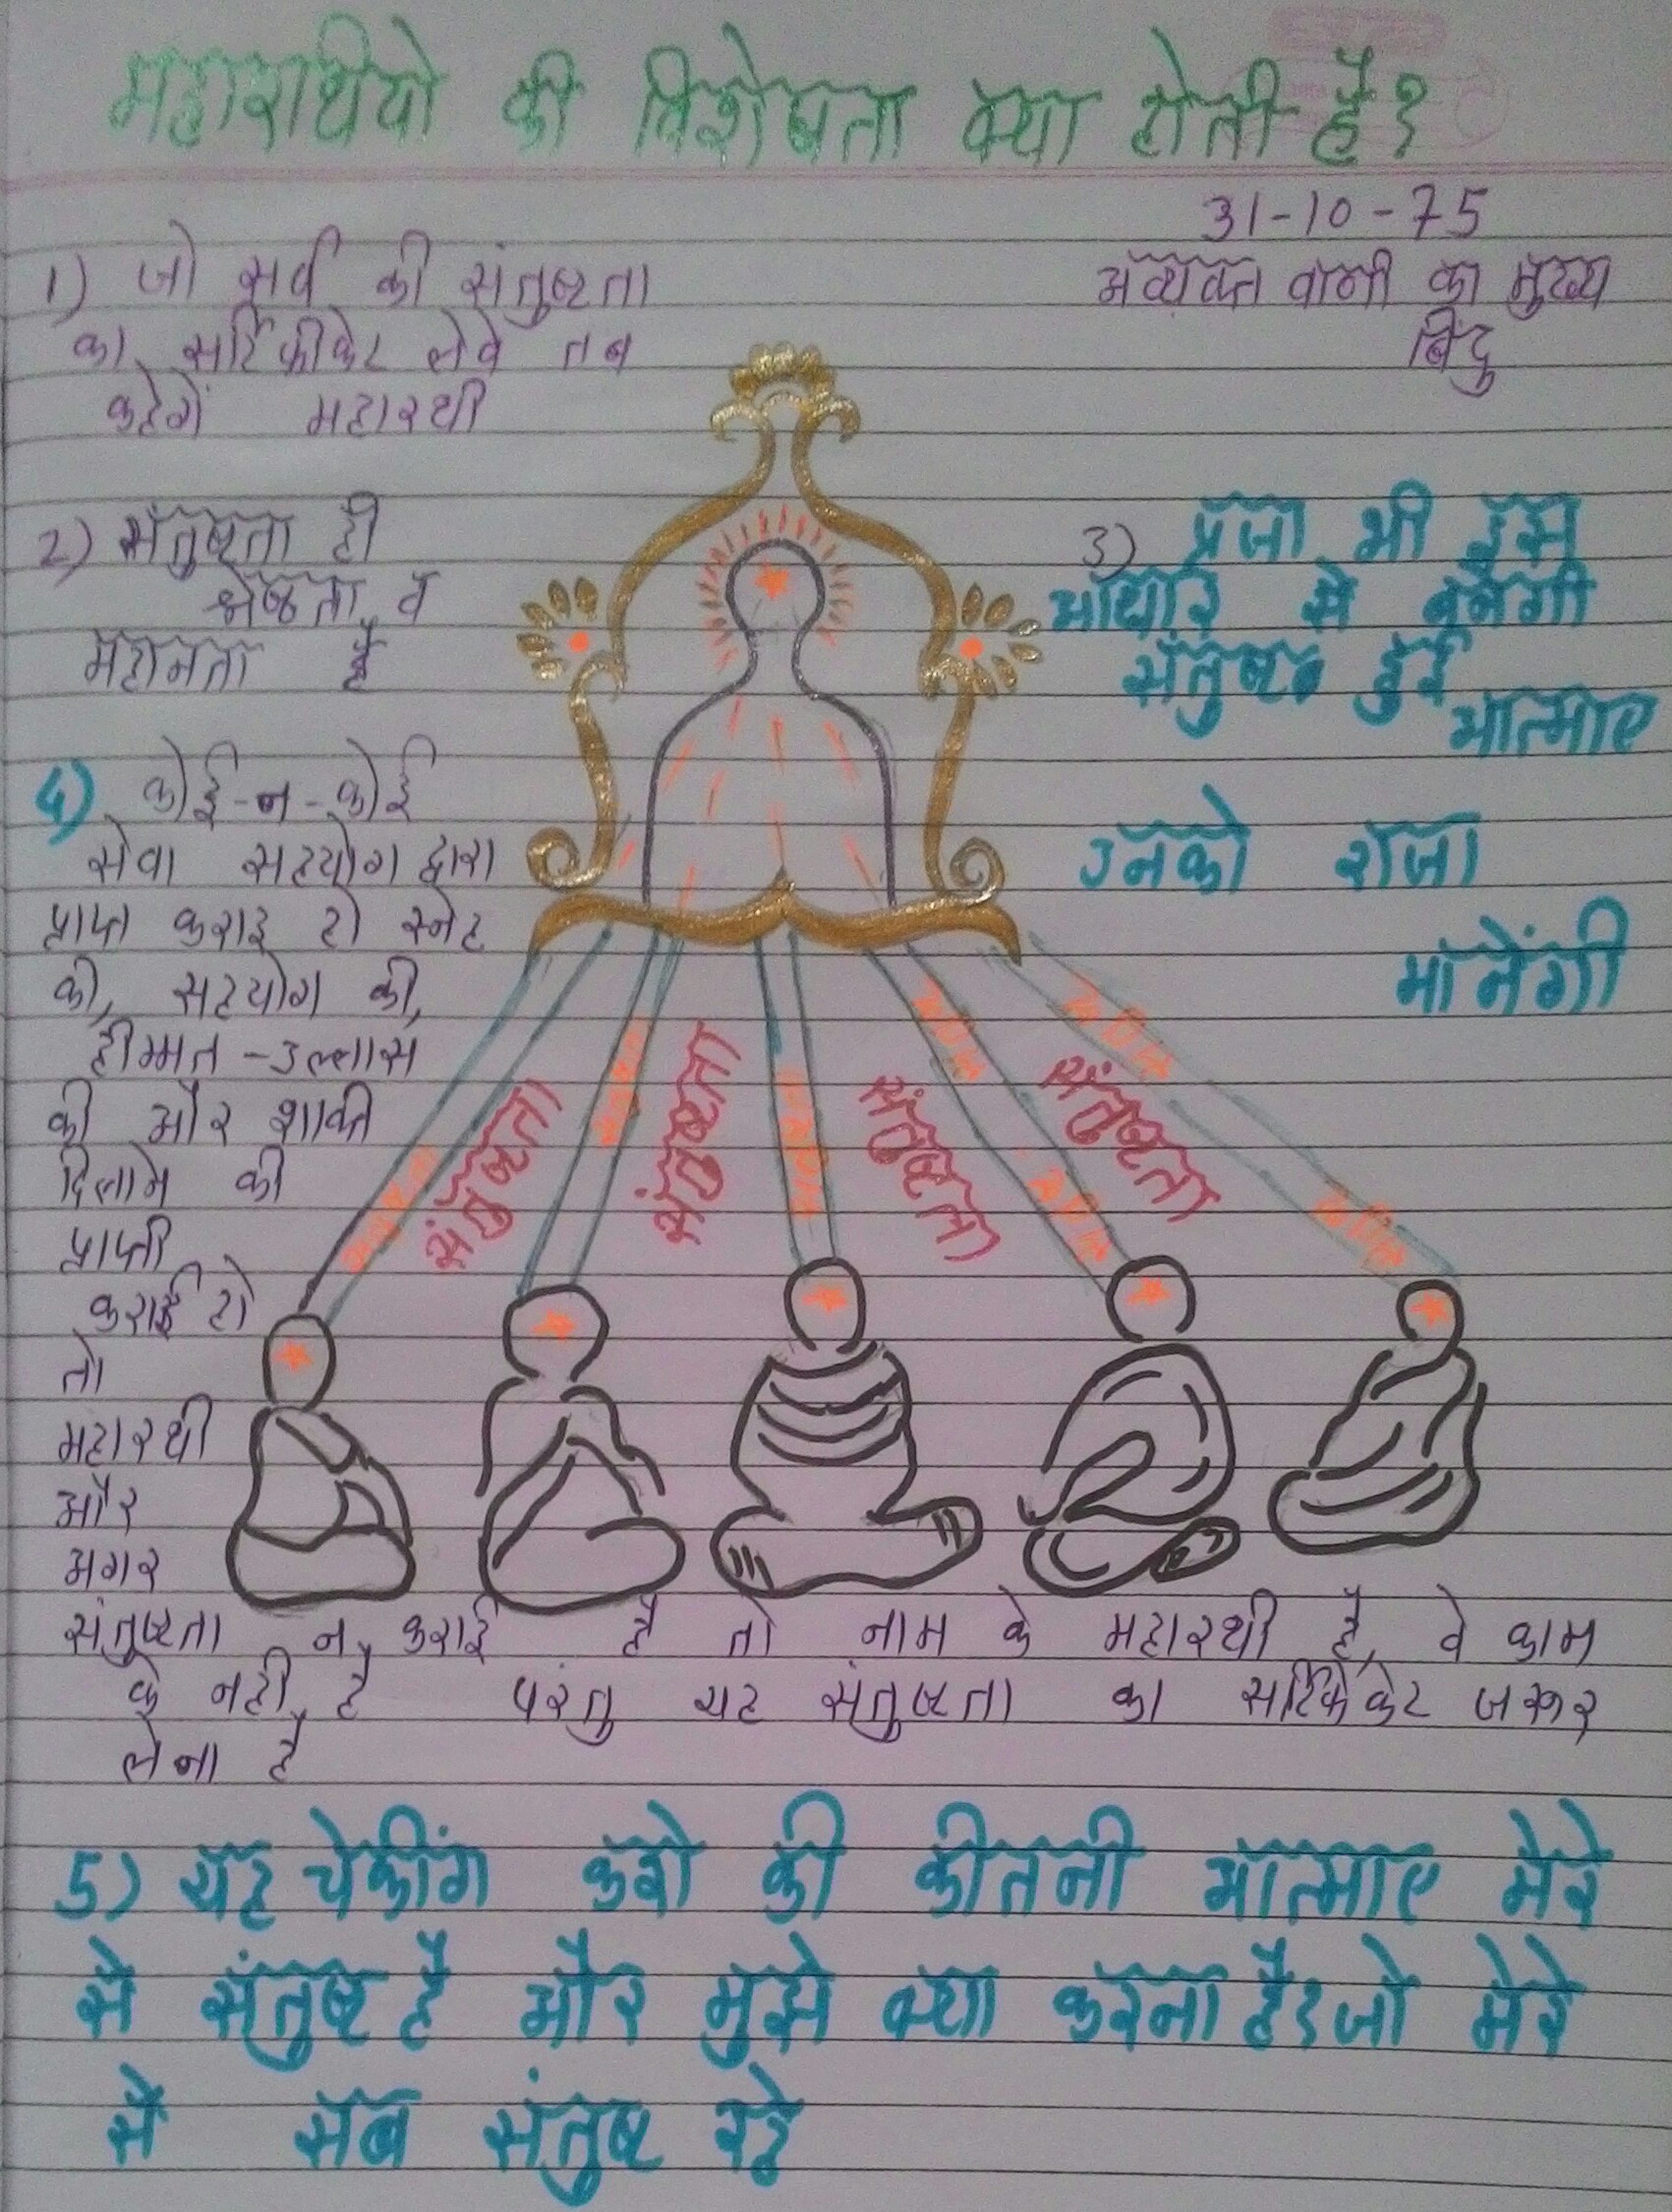 महारथियो की विशेषता क्या होती है?
31-10-75
अव्यक्त वाणी का मुख्य
बिंदु
1) जो सर्व की संतुष्टता
का सर्टिफीकेट लेवे तब
कहेगें महारथी
2) संतुष्टता ही
श्रेष्ठता व
महानता है
3) प्रजा भी इस
आधार से बनेगी
संतुष्ट हुई
आत्माए
उनको राजा
मानेंगी
4) कोई-न-कोई
सेवा सहयोग द्वारा
प्राप्त कराइ हो स्नेह
की, सहयोग की,
हीम्मत-उल्लास
की और शक्ति
दिलाने की
प्राप्ती
कराई हो
तो
महारथी
और
अगर
संतुष्टता न कराई है तो नाम के महारथी है, वे काम
के नही है परंतु यह संतुष्टता का सर्टिफिकेट जरूर
लेना है
संतुष्टता
संतुष्टता
संतुष्टता
संतुष्टता
5) यह चेकींग करो की कीतनी आत्माए मेरे
से संतुष्ट है और मुझे क्या करना है? जो मेरे
से सब संतुष्ट रहे